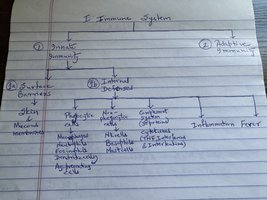 I Immune System
① Innate
Immunity
② Adaptive
Immunity
①a Surface
Barriers
①b Internal
Defenses
Skin
Mucous
membranes
Phagocytic
cells
Non-
phagocytic
cells
Complement
system
(proteins)
Inflammation
Fever
Macrophages
Neutrophils
Eosinophils
Dendritic cells
Ag presenting
cells
NK cells
Basophils
Mast cells
Cytokines
(TNF, Interferons
& Interleukins)